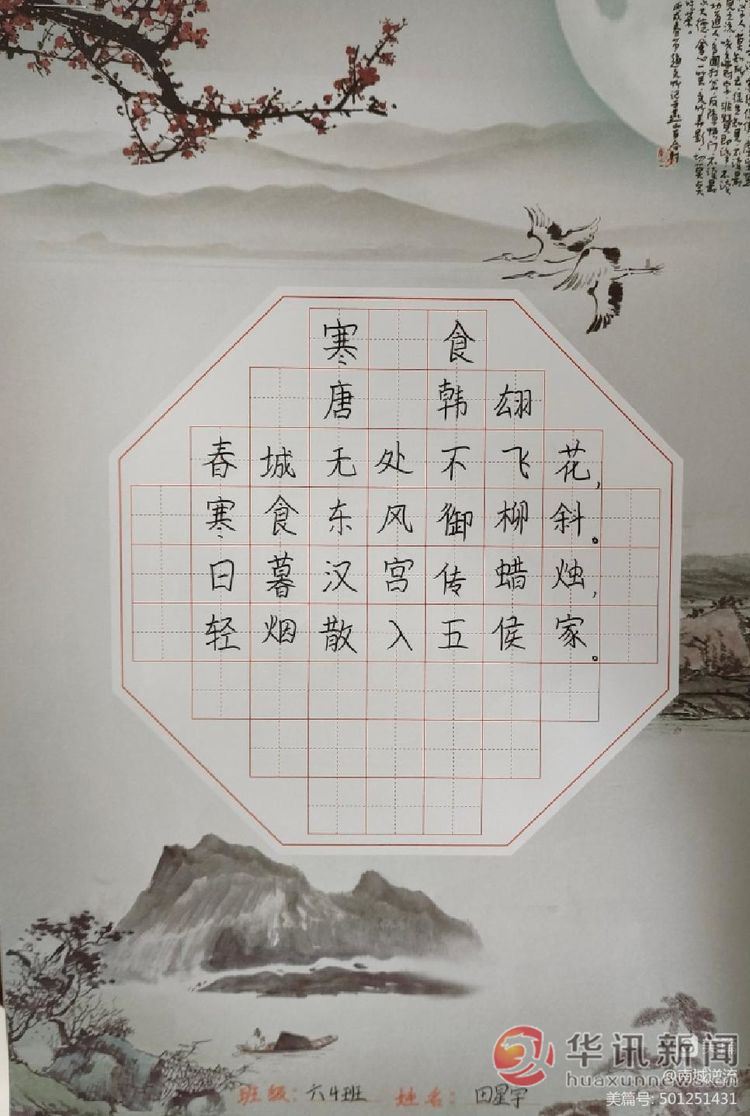 寒食
唐 韩翃
春城无处不飞花,
寒食东风御柳斜。
日暮汉宫传蜡烛,
轻烟散入五侯家。
班级:六4班 姓名:田星宇
华讯新闻
huaxunnews.com
@南城逆流
美篇号: 501251431